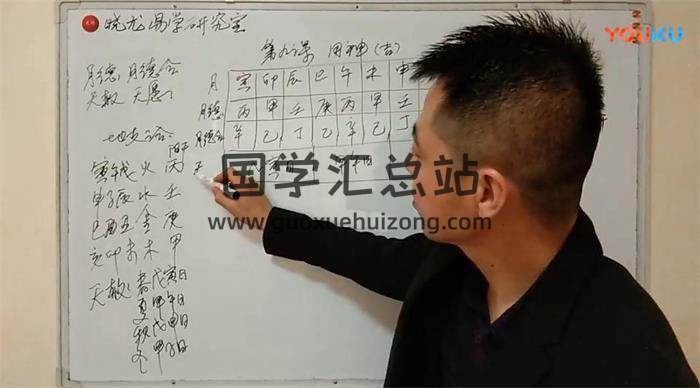 晓龙易学研究室
YOUKU
第九课 用神(吉)
月德 月德合
天赦 天愿
月 寅 卯 辰 巳 午 未 申
月德 丙 甲 壬 庚 丙 甲 壬
月德合 辛 己 丁 乙 辛 己 丁
地支三合
阳干
寅午戌 火 丙
申子辰 水 壬
巳酉丑 金 庚
亥卯未 木 甲
天赦: 春 戊寅日
夏 甲午日
秋 戊申日
冬 甲子日
国学汇总站
www.guoxuehuizong.com